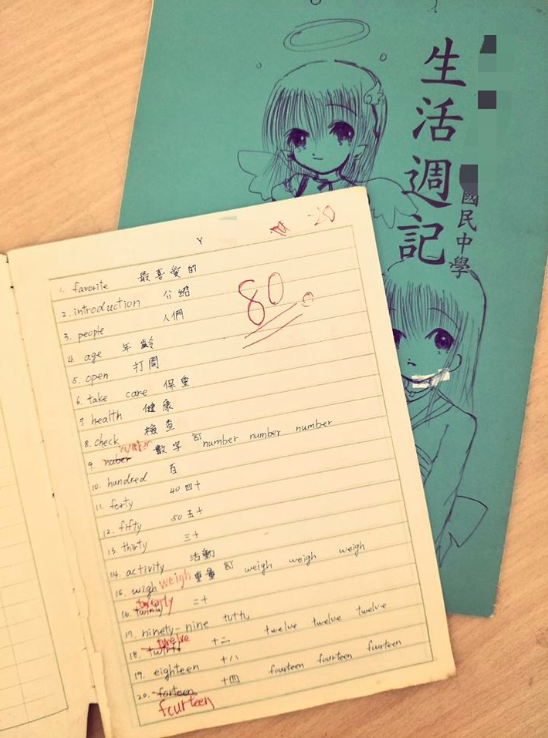 生活週記
國民中學
80
1. favorite 最喜愛的
2. introduction 介紹
3. people 人們
4. age 年齡
5. open 打開
6. take care 保重
7. health 健康
8. check 檢查
9. nuber number 數字 訂 number number number
10. hundred 百
11. forty 40 四十
12. fifty 50 五十
13. thirty 三十
14. activity 活動
15. wigh weigh 重量 訂 weigh weigh weigh
16. twenty 二十
17. ninety-nine 九十九
18. twelve 十二 twelve twelve twelve
19. eighteen 十八
20. forteen 十四 fourteen fourteen fourteen
fourteen